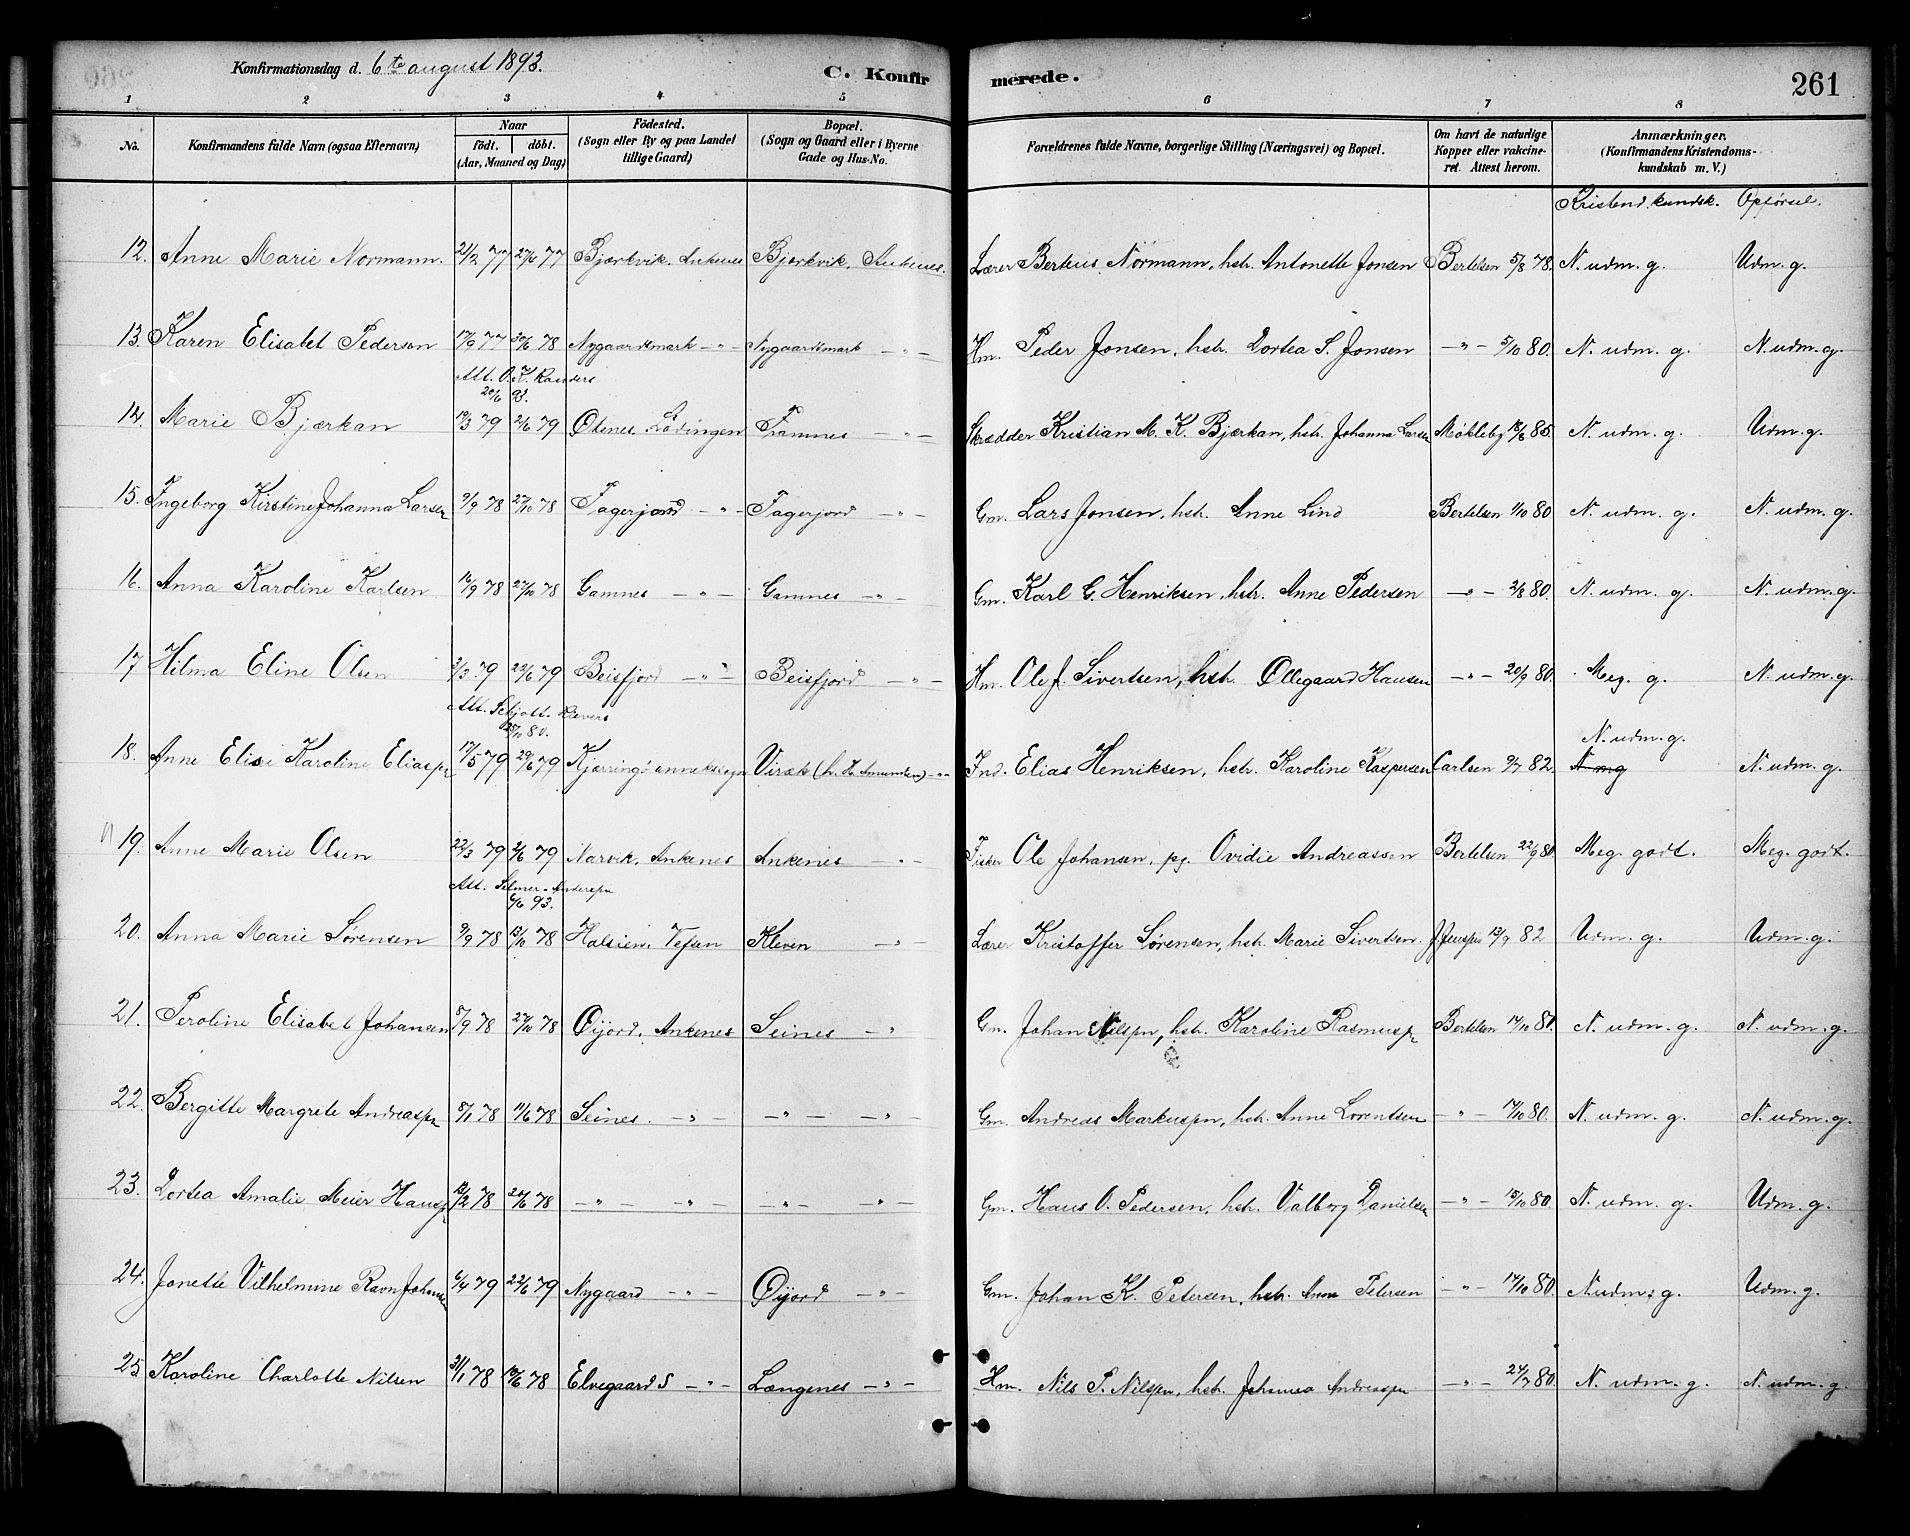 Konfirmationsdag d. 6te august 1893.
C. Konfirmerede.
261
1 2 3 4 5 6 7 8
No.
Konfirmandens fulde Navn (ogsaa Efternavn)
Naar
födt. döbt.
(Aar, Maaned og Dag)
Födested.
(Sogn eller By og paa Landet
tillige Gaard)
Bopæl.
(Sogn og Gaard eller i Byerne
Gade og Hus-No.
Forældrenes fulde Navne, borgerlige Stilling (Næringsvei) og Bopæl.
Om havt de naturlige
Kopper eller vakcine-
ret. Attest herom.
Anmærkninger.
(Konfirmandens Kristendoms-
kundskab m. V.)
Kristend. kundsk. Opførsel.
12. Anne Marie Normann. 21/2 77 27/6 77 Bjærkvik, Ankenes Bjerkvik, Ankenes. Lærer Berteus Normann, hstr. Antonette Jonsen Bertelsen 5/8 78. N. udm. g. Udm. g.
13. Karen Elisabet Pedersen 17/6 77 30/6 78 Nygaardsmark -"- Nygaardsmark -"- Hm. Peder Jonsen, hstr. Dortea S. Jonsen -"- 5/10 80. N. udm. g. N. udm. g.
Att. O. K. Randers
20/6 93.
14. Marie Bjærkan 19/3 79 2/6 79 Otenes. Lødingen Framnes "- Skrædder Kristian M. K. Bjærkan, hstr. Johanna Larsen Møkleby 18/8 85. N. udm. g. Udm. g.
15. Ingeborg Kirstine Johanna Larsen 9/9 78 27/10 78 Fagerjord -"- Fagerjord -"- Gm. Lars Jonsen, hstr. Anne Lind Bertelsen 1/10 80 N. udm. g. N. udm. g.
16. Anna Karoline Karlsen 16/9 78 27/10 78 Gamnes -"- Gamnes -"- Gm. Karl G. Henriksen, hstr. Anne Pedersen -"- 2/8 80. N. udm. g. N. udm. g.
17 Hilma Eline Olsen 3/3 79 22/6 79 Beisfjord -"- Beisfjord -"- Hm. Ole J. Sivertsen, hstr. Ollegaard Hansen -"- 20/9 80. Meg. g. N. udm. g.
Att. Schjott-Rievers
25/10 80.
18. Anne Elise Karoline Eliaspn 17/5 79 29/6 79 Kjærringö annekssogn Viræk (hr. H. Amundsen) -"- Ind. Elias Henriksen, hstr. Karoline Kaspersen Carlsen 9/7 82. N. udm. g. N. mg N. udm. g.
19. Anne Marie Olsen 22/3 79 2/6 79 Narvik, Ankenes Ankenes "- Fisker Ole Johansen, pg. Ovidie Andreassen Bertelsen 22/9 80. Meg. godt. Meg. godt.
Att. Selmer-Anderspn
6/6 93.
20. Anna Marie Sørensen 9/9 78 13/10 78 Halsien, Vefsen Kleven -"- Lærer Kristoffer Sørensen, hstr. Marie Sivertsen. J. Jenspn 19/9 82 Udm. g. Udm. g.
21. Peroline Elisabet Johansen 8/9 78 27/10 78 Øijord, Ankenes Seines -"- Gm. Johan Nilspn, hstr. Karoline Rasmuspn Bertelsen 14/10 80. N. udm. g. N. udm. g.
22. Bergitte Margrete Andreaspn 8/1 78 11/6 78 Seines. -"- -"- -"- Gm. Andreas Markuspn, hstr. Anne Lorentsen -"- 14/10 80. N. udm. g. N. udm. g.
23. Dortea Amalie Meier Hanspn 12/2 78 24/6 78 -"- -"- -"- -"- Gm. Hans O. Pedersen, hstr. Valborg Danielsen -"- 15/10 80. N. udm. g. Udm. g.
24. Jonette Vilhelmine Ravn Johansen 6/4 79 22/6 79 Nygaard -"- Øijord -"- Gm. Johan K. Petersen, hstr. Anne Petersen -"- 14/10 80. N. udm. g. Udm. g.
25 Karoline Charlotte Nilsen 31/1 78 10/6 78 Elvegaard S -"- Længenes -"- Hm. Nils P. Nilspn, hstr. Johanna Andreaspn -"- 24/7 80. N. udm. g. N. udm. g.